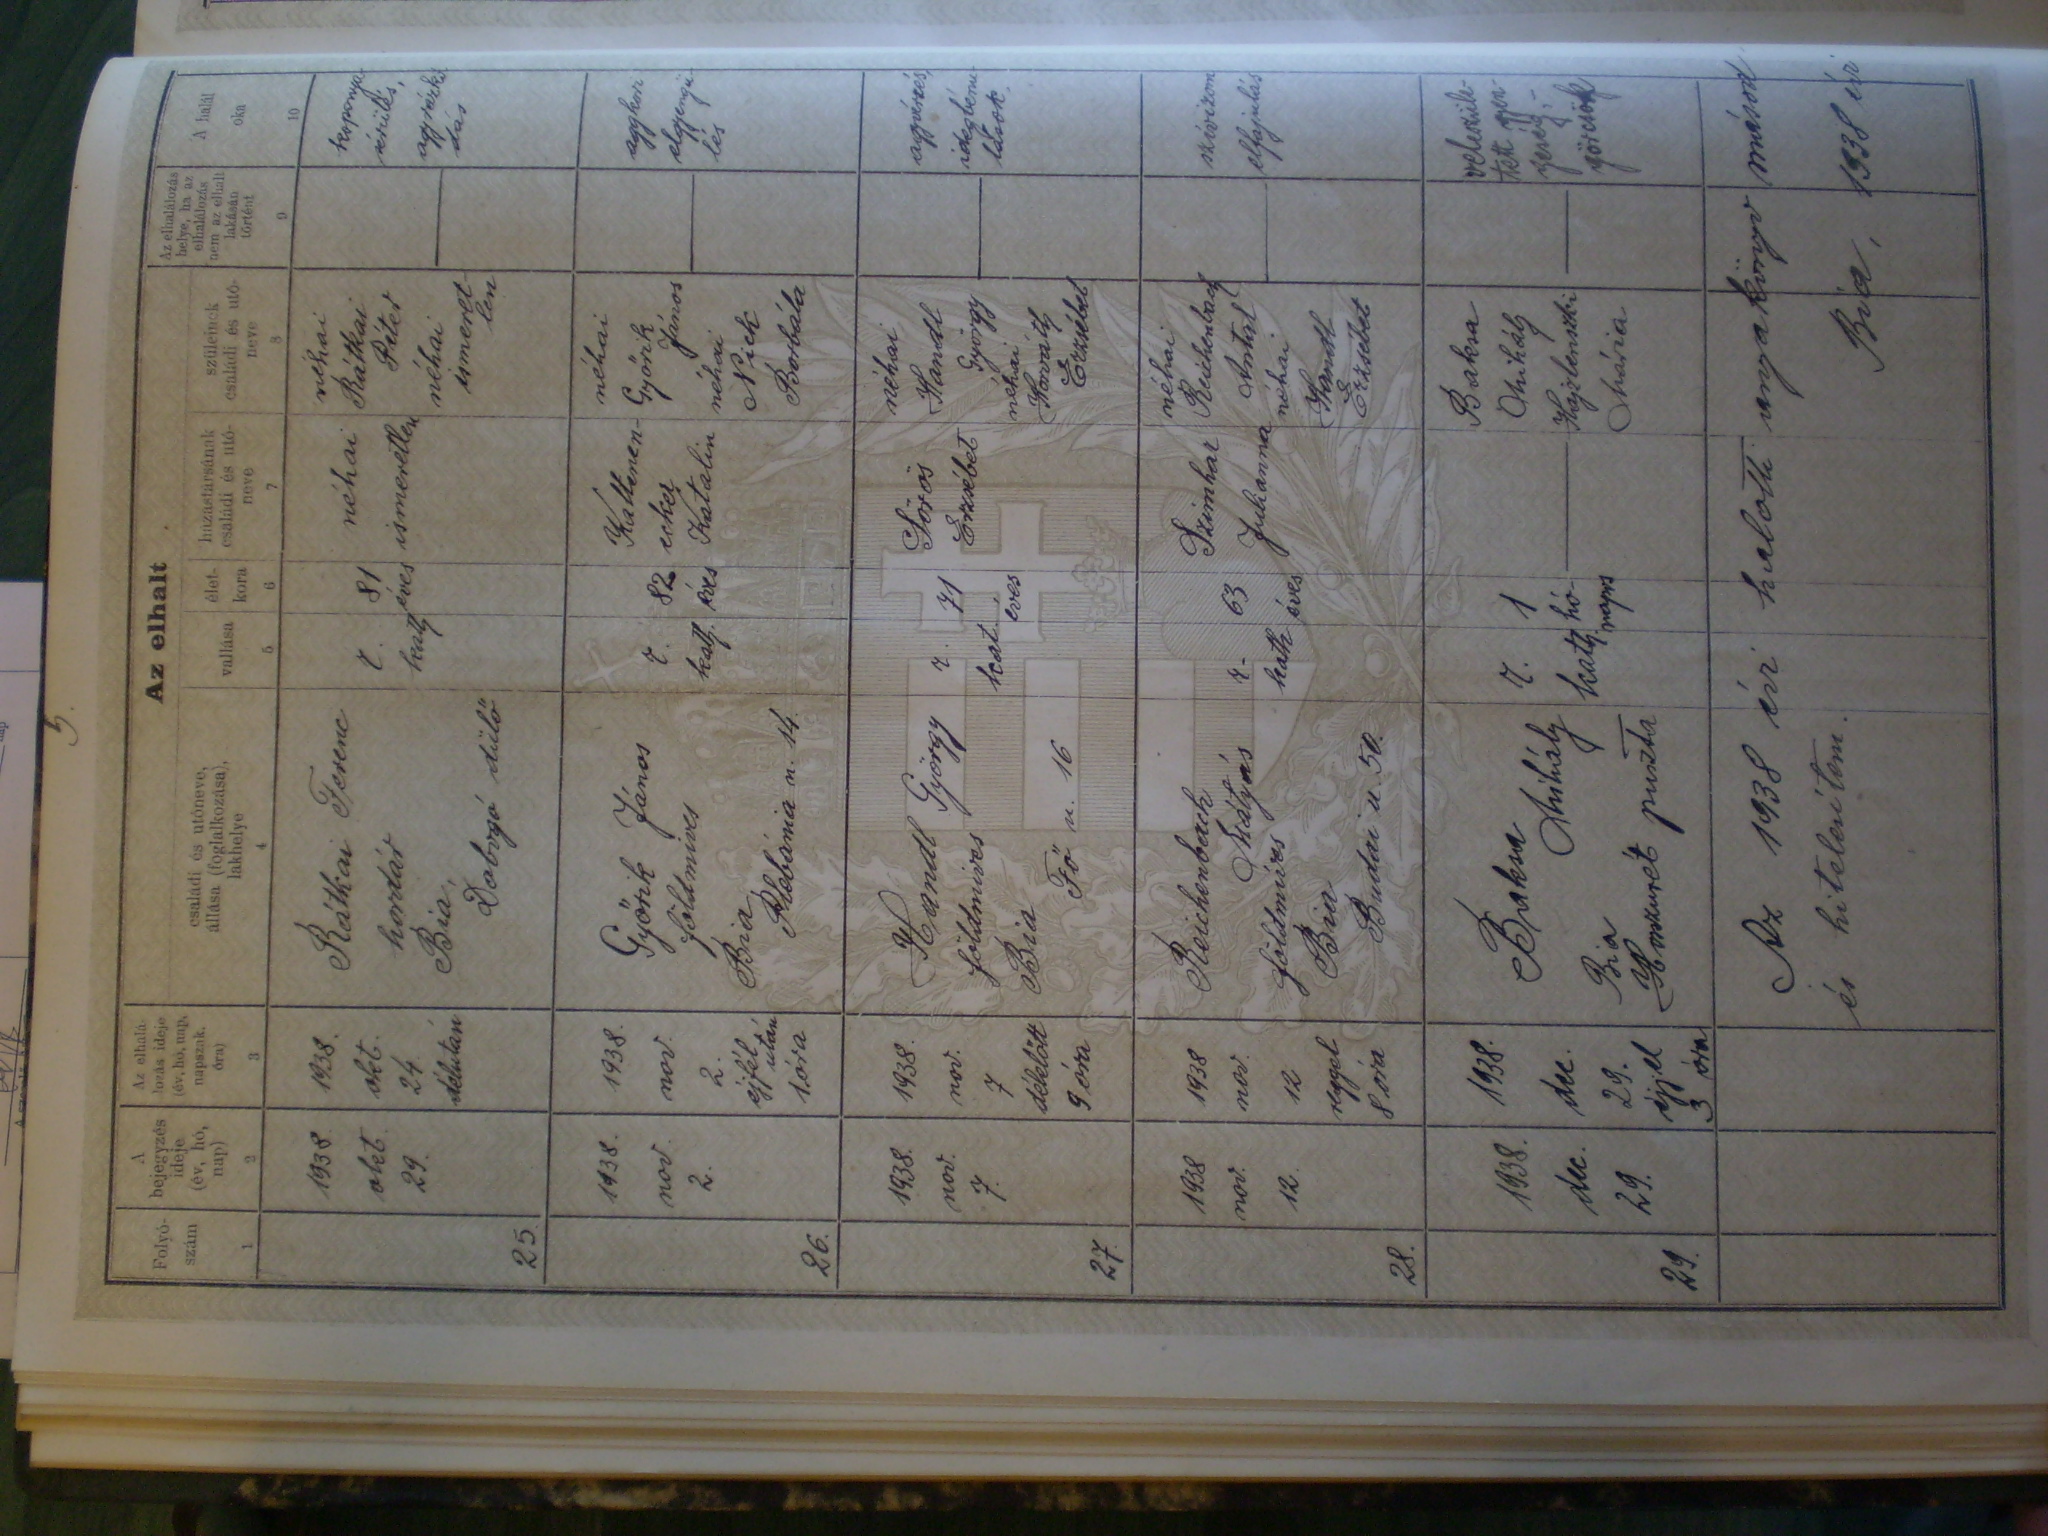 5.
Az elhalt
Folyó-
szám
1
A
bejegyzés
ideje
(év, hó,
nap)
2
Az elhalá-
lozás ideje
(év, hó, nap,
napszak,
óra)
3
családi és utóneve,
állása (foglalkozása),
lakhelye
4
vallása
5
élet-
kora
6
házastársának
családi és utó-
neve
7
szüleinek
családi és utó-
neve
8
Az elhalálozás
helye, ha az
elhalálozás
nem az elhalt
lakásán
történt
9
A halál
oka
10
25.
1938.
okt.
29.
1938.
okt.
24.
délután
Rátkai Ferenc
hordár
Bia,
Dobogó dűlő
r.
kath.
81
éves
néhai
ismeretlen
néhai
Rátkai
Péter
néhai
ismeret-
len
koponya-
sérülés,
agyrázkó-
dás
26.
1938.
nov.
2.
1938.
nov.
2.
éjfél
után
1 óra
Győrik János
földmíves
Bia
Plébánia u. 14.
r.
kath.
82
éves
Kaltenen-
ecker
Katalin
néhai
Győrik
János
néhai
Nick
Borbála
aggkori
elgyengü-
lés
27.
1938.
nov.
7.
1938.
nov.
7
délelőtt
9 óra
Handl György
földmíves
Bia
Fő u. 16
r.
kat.
71
éves
Sörös
Erzsébet
néhai
Handl
György
néhai
Horváth
Erzsébet
agyvérzés,
28.
1938
nov.
12.
1938
nov.
12
reggel
8 óra
Reichenbach
Mátyás
földmíves
Bia
Budai u. 50.
r.
kath
63
éves
Szimhar
Julianna
néhai
Reichenbach
Antal
néhai
Handl
Erzsébet
szívizom
elfajulás
29.
1938.
dec.
29.
1938.
dec.
29.
éjjel
3 óra
Baksa
Mihály
Bia
puszta
r.
kath.
1
hó-
napos
Baksa
Mihály
Hajlenszki
Mária
veleszüle-
tett gyen-
geség,-
görcsök
Az 1938 évi halotti anyakönyv másod
és hitelesítem.
Bia, 1938 évi